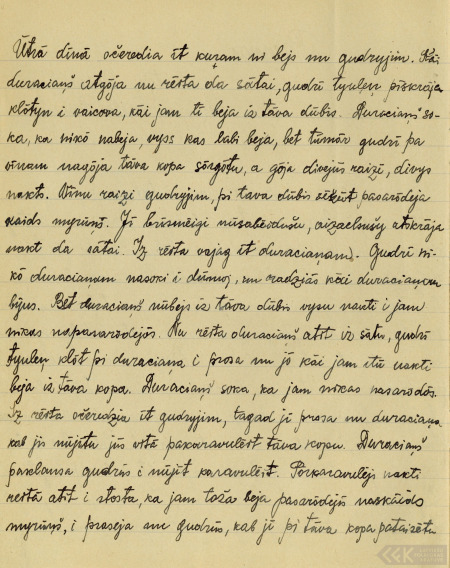 Ūtrā dīnā očeredia īt kuram nī bejs nu gudryjim. Kai
duracianš atgōja nu rēita da sātai, gudrī tyuleņ pīskrēja
klōtyn i vaicova, kāi jam tī beja iz tāva dūbis. Duraciaņš so-
ka, ka nikō nabeja, vyss kas labi beja, bet tūmār gudrī pa
vīnam nagōja tāva kopa sorgōtu, a gōja divejūs raizī, divys
nakts. Vīnu raizi gudryjim, pi tava dūbis sēžūt pasarōdeja
kaids myrūņš. Jī briesmeigi nūsabeidušu, aizacalnušy atskrāja
nakt da sātai. Iz rēita vajag īt duracianam. Gudrī ni-
kō duracianam nasoki i dūmoj, nu radzjās kāi duracianam
byus. Bet duraciaņš nūbejs iz tāva dūbis vysu nakti i jam
nikas napasarōdejōs. Nu rēita duraciaņš atīt iz sātu, gudrī
tyuleņ klōt pi duraciana i prosa nu jō kāi jam itū nakti
beja iz tāva kopa. Duraciaņš soka, ka jam nikas nasarōdōs.
Iz rēita očeredia īt gudryjim, tagad jī prosa nu duraciana
kab jis nūītu jūs vītā pakaravuleit tāva kopu. Duraciaņš
paklausa gudrūs i nūīt karavuleit. Pōrkaravulējs nakti
reitā atīt i stosta, ka jam toža beja pasarōdejīs naskaids
myrūņš, i proseja nu gudrūs, kab jī pi tāva kopa pataisētu